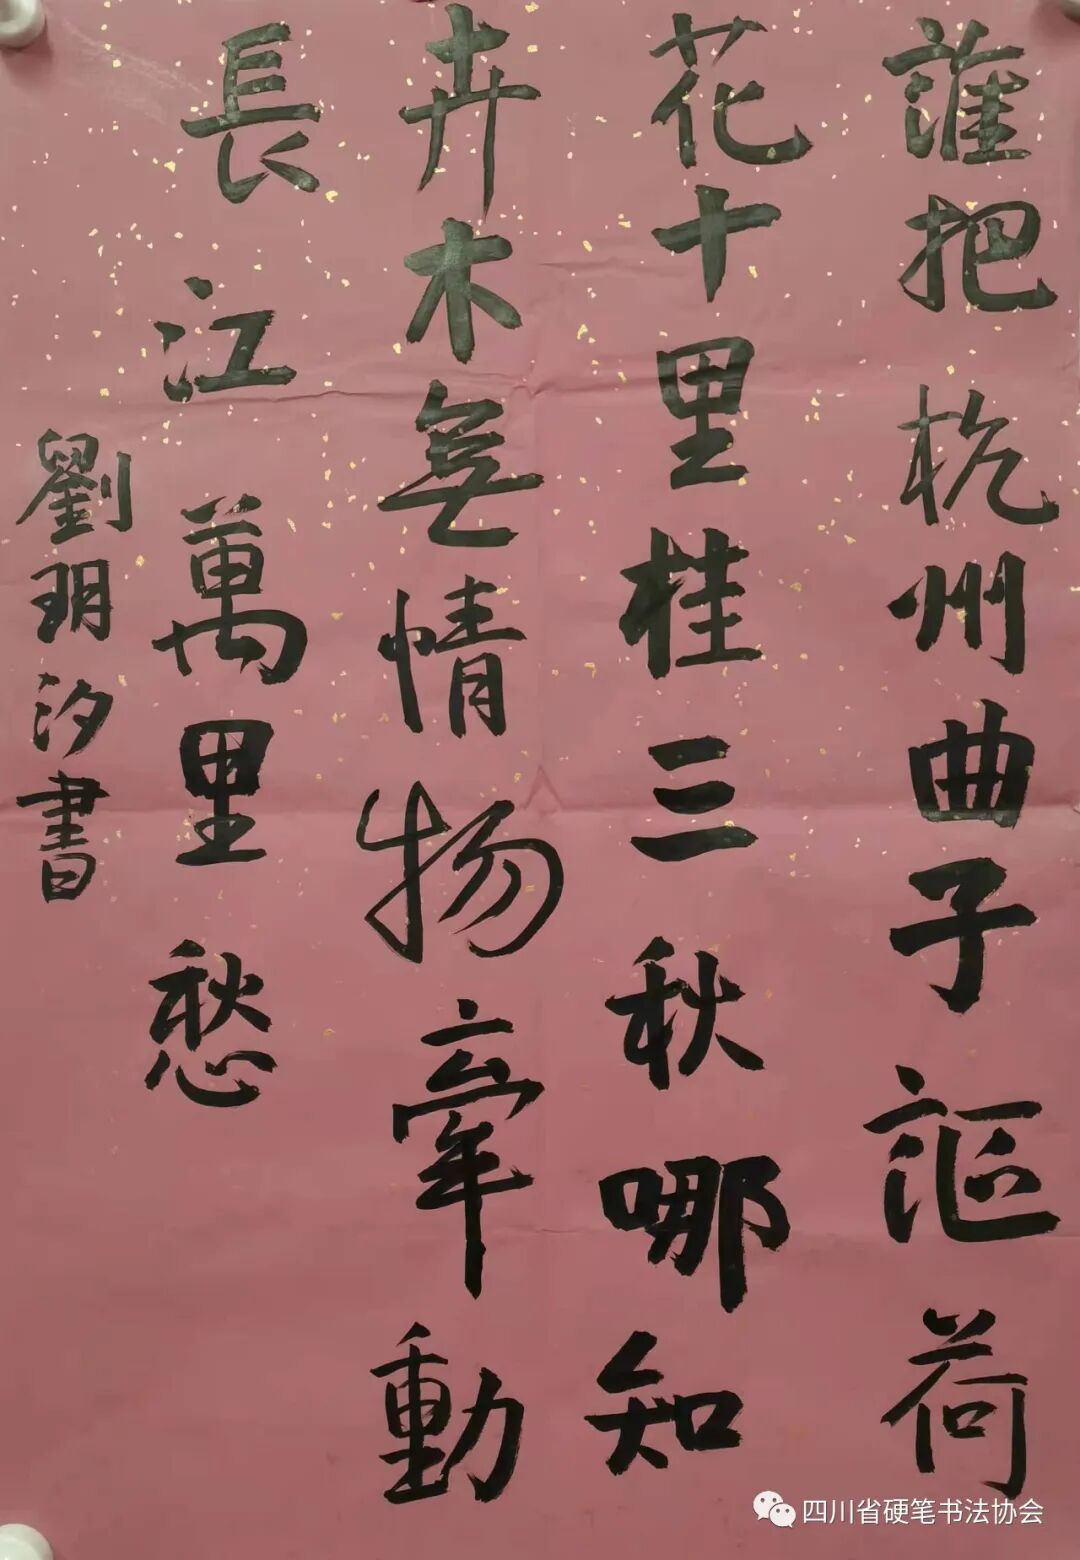 誰把杭州曲子謳荷
花十里桂三秋哪知
卉木無情物牽動
長江萬里愁
劉玥汐書
四川省硬笔书法协会